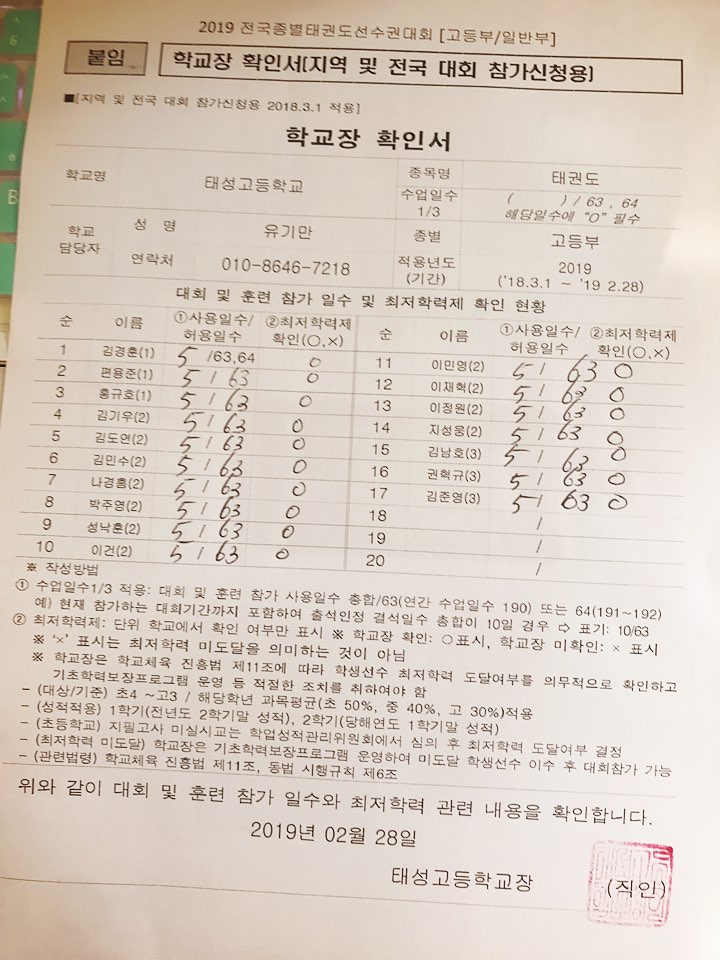 2019 전국종별태권도선수권대회 [고등부/일반부]
붙임 학교장 확인서(지역 및 전국 대회 참가신청용)
■[지역 및 전국 대회 참가신청용 2018.3.1 적용]
학교장 확인서
학교명 태성고등학교 종목명 태권도
수업일수 1/3 ( ) / 63 , 64
해당일수에 "O" 필수
학교 담당자 성 명 유기만 종별 고등부
연락처 010-8646-7218 적용년도 (기간) 2019
('18.3.1 ~ '19 2.28)
대회 및 훈련 참가 일수 및 최저학력제 확인 현황
순 이름 ①사용일수/허용일수 ②최저학력제 확인(○,×) 순 이름 ①사용일수/허용일수 ②최저학력제 확인(○,×)
1 김경훈(1) 5 /63,64 O 11 이민영(2) 5 / 63 O
2 편용준(1) 5 / 63 O 12 이재혁(2) 5 / 63 O
3 홍규호(1) 5 / 63 O 13 이정원(2) 5 / 63 O
4 김기우(2) 5 / 63 O 14 지성웅(2) 5 / 63 O
5 김도연(2) 5 / 63 O 15 김남호(3) 5 / 63 O
6 김민수(2) 5 / 63 O 16 권혁규(3) 5 / 63 O
7 나경흠(2) 5 / 63 O 17 김준영(3) 5 / 63 O
8 박주영(2) 5 / 63 O 18 /
9 성낙훈(2) 5 / 63 O 19 /
10 이건(2) 5 / 63 O 20 /
※ 작성방법
① 수업일수1/3 적용: 대회 및 훈련 참가 사용일수 총합/63(연간 수업일수 190) 또는 64(191~192)
예) 현재 참가하는 대회기간까지 포함하여 출석인정 결석일수 총합이 10일 경우 ⇨ 표기: 10/63
② 최저학력제: 단위 학교에서 확인 여부만 표시 ※ 학교장 확인: ○표시, 학교장 미확인: × 표시
※ '×' 표시는 최저학력 미도달을 의미하는 것이 아님
※ 학교장은 학교체육 진흥법 제11조에 따라 학생선수 최저학력 도달여부를 의무적으로 확인하고
기초학력보장프로그램 운영 등 적절한 조치를 취하여야 함
- (대상/기준) 초4 ~고3 / 해당학년 과목평균(초 50%, 중 40%, 고 30%)적용
- (성적적용) 1학기(전년도 2학기말 성적), 2학기(당해연도 1학기말 성적)
- (초등학교) 지필고사 미실시교는 학업성적관리위원회에서 심의 후 최저학력 도달여부 결정
- (최저학력 미도달) 학교장은 기초학력보장프로그램 운영하여 미도달 학생선수 이수 후 대회참가 가능
- (관련법령) 학교체육 진흥법 제11조, 동법 시행규칙 제6조
위와 같이 대회 및 훈련 참가 일수와 최저학력 관련 내용을 확인합니다.
2019년 02월 28일
태성고등학교장 (직인)